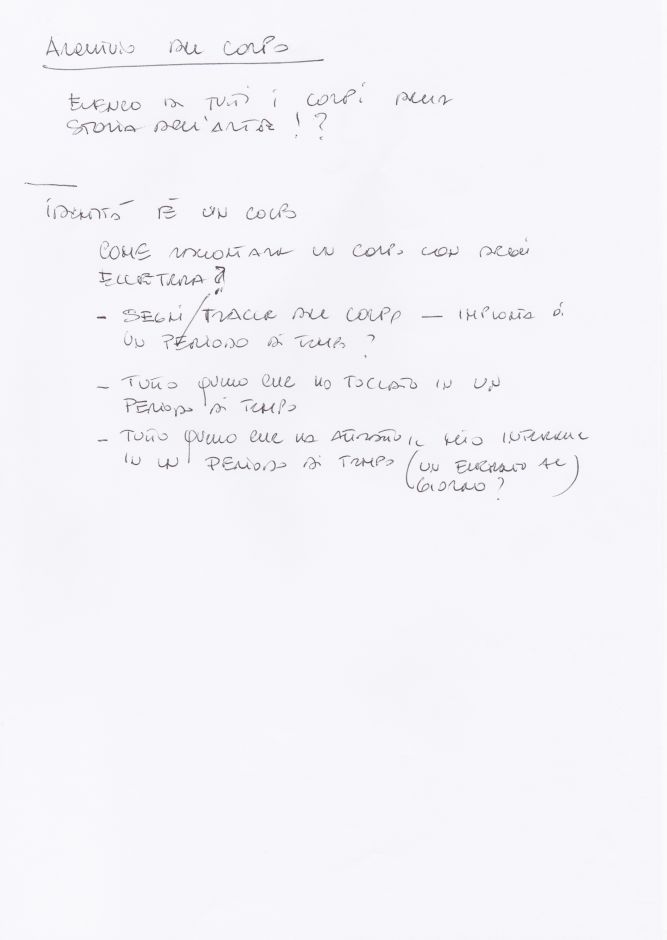 ARCHIVIO DEL CORPO
ELENCO DI TUTTI I CORPI DELLA
STORIA DELL'ARTE!?
IDENTITÀ È UN CORPO
COME RACCONTARE UN CORPO CON DEGLI
- SEGNI/TRACCE DEL CORPO — IMPRONTA DI
UN PERIODO DI TEMPO?
- TUTTO QUELLO CHE HO TOCCATO IN UN
PERIODO DI TEMPO
- TUTTO QUELLO CHE HA ATTIRATO IL MIO INTERESSE
IN UN PERIODO DI TEMPO (UN ELEMENTO AL
GIORNO?)